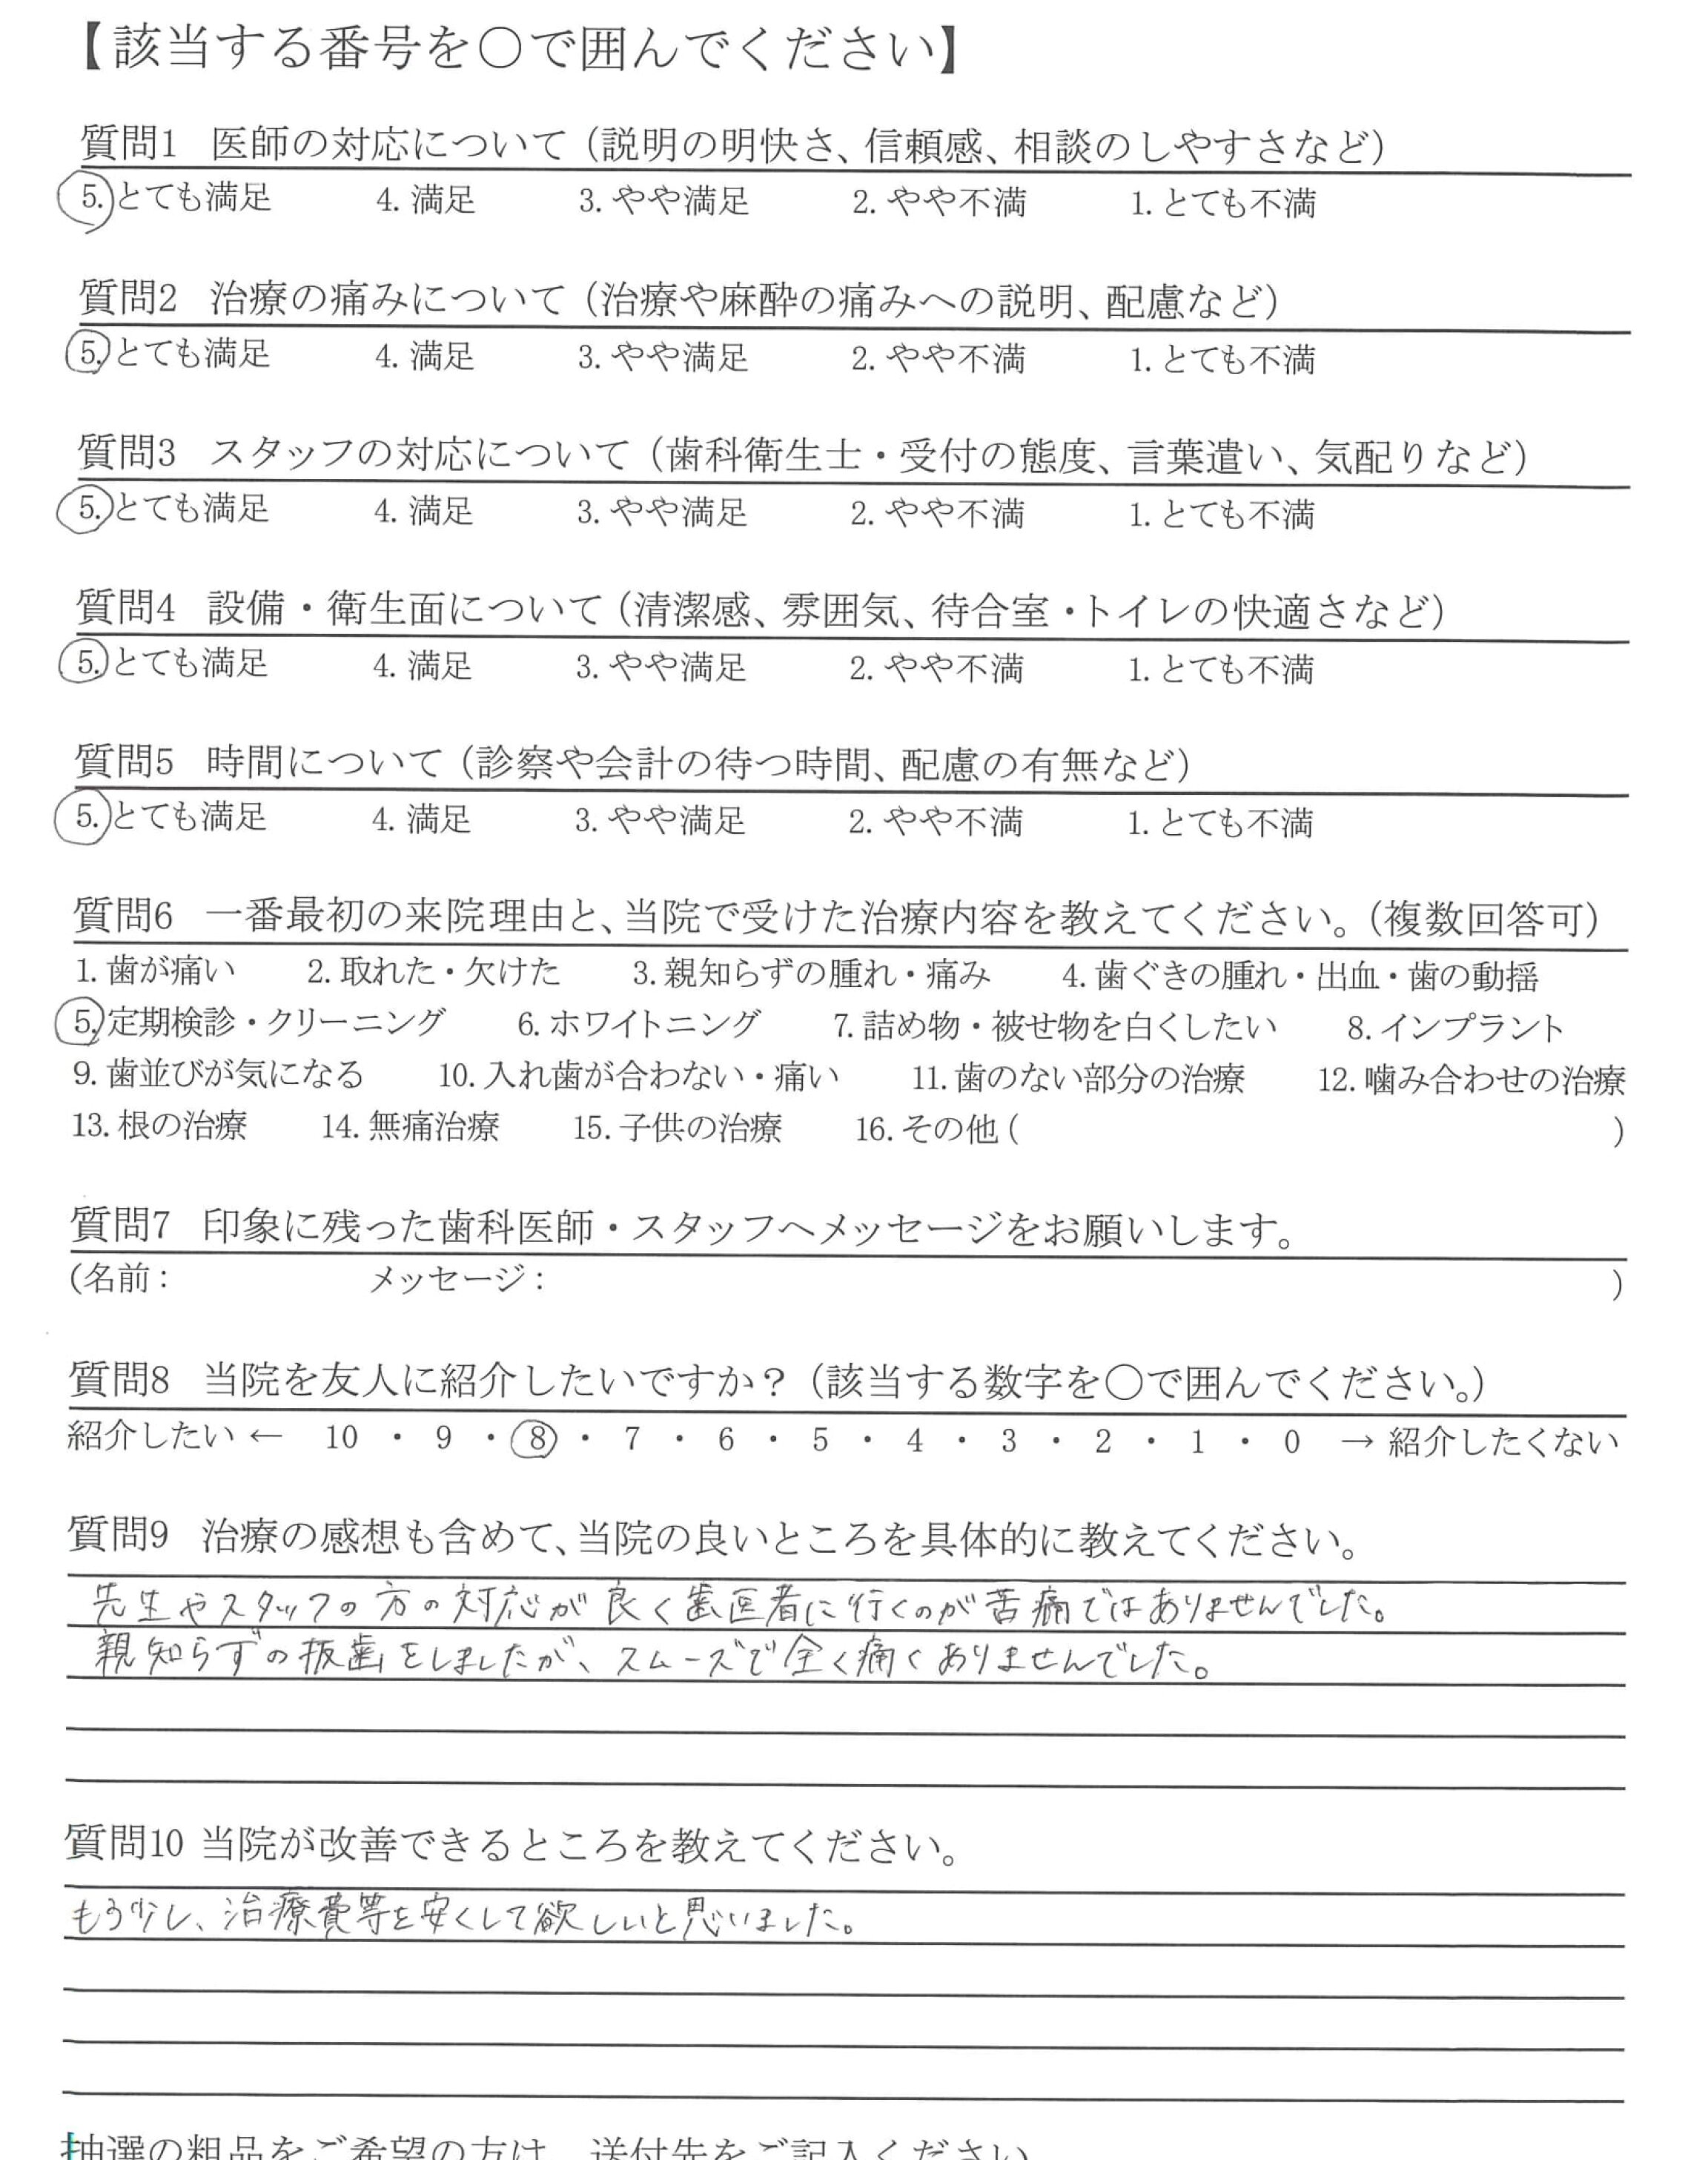 【該当する番号を○で囲んでください】
質問1 医師の対応について（説明の明快さ、信頼感、相談のしやすさなど）
5. とても満足 4. 満足 3. やや満足 2. やや不満 1. とても不満
質問2 治療の痛みについて（治療や麻酔の痛みへの説明、配慮など）
5. とても満足 4. 満足 3. やや満足 2. やや不満 1. とても不満
質問3 スタッフの対応について（歯科衛生士・受付の態度、言葉遣い、気配りなど）
5. とても満足 4. 満足 3. やや満足 2. やや不満 1. とても不満
質問4 設備・衛生面について（清潔感、雰囲気、待合室・トイレの快適さなど）
5. とても満足 4. 満足 3. やや満足 2. やや不満 1. とても不満
質問5 時間について（診察や会計の待つ時間、配慮の有無など）
5. とても満足 4. 満足 3. やや満足 2. やや不満 1. とても不満
質問6 一番最初の来院理由と、当院で受けた治療内容を教えてください。（複数回答可）
1. 歯が痛い 2. 取れた・欠けた 3. 親知らずの腫れ・痛み 4. 歯ぐきの腫れ・出血・歯の動揺
5. 定期検診・クリーニング 6. ホワイトニング 7. 詰め物・被せ物を白くしたい 8. インプラント
9. 歯並びが気になる 10. 入れ歯が合わない・痛い 11. 歯のない部分の治療 12. 噛み合わせの治療
13. 根の治療 14. 無痛治療 15. 子供の治療 16. その他（ ）
質問7 印象に残った歯科医師・スタッフへメッセージをお願いします。
（名前： メッセージ： ）
質問8 当院を友人に紹介したいですか？（該当する数字を○で囲んでください。）
紹介したい ← 10 ・ 9 ・ 8 ・ 7 ・ 6 ・ 5 ・ 4 ・ 3 ・ 2 ・ 1 ・ 0 → 紹介したくない
質問9 治療の感想も含めて、当院の良いところを具体的に教えてください。
先生やスタッフの方の対応が良く歯医者に行くのが苦痛ではありませんでした。
親知らずの抜歯をしましたが、スムーズで全く痛くありませんでした。
質問10 当院が改善できるところを教えてください。
もう少し、治療費等を安くして欲しいと思いました。
抽選の粗品をご希望の方は、送付先をご記入ください